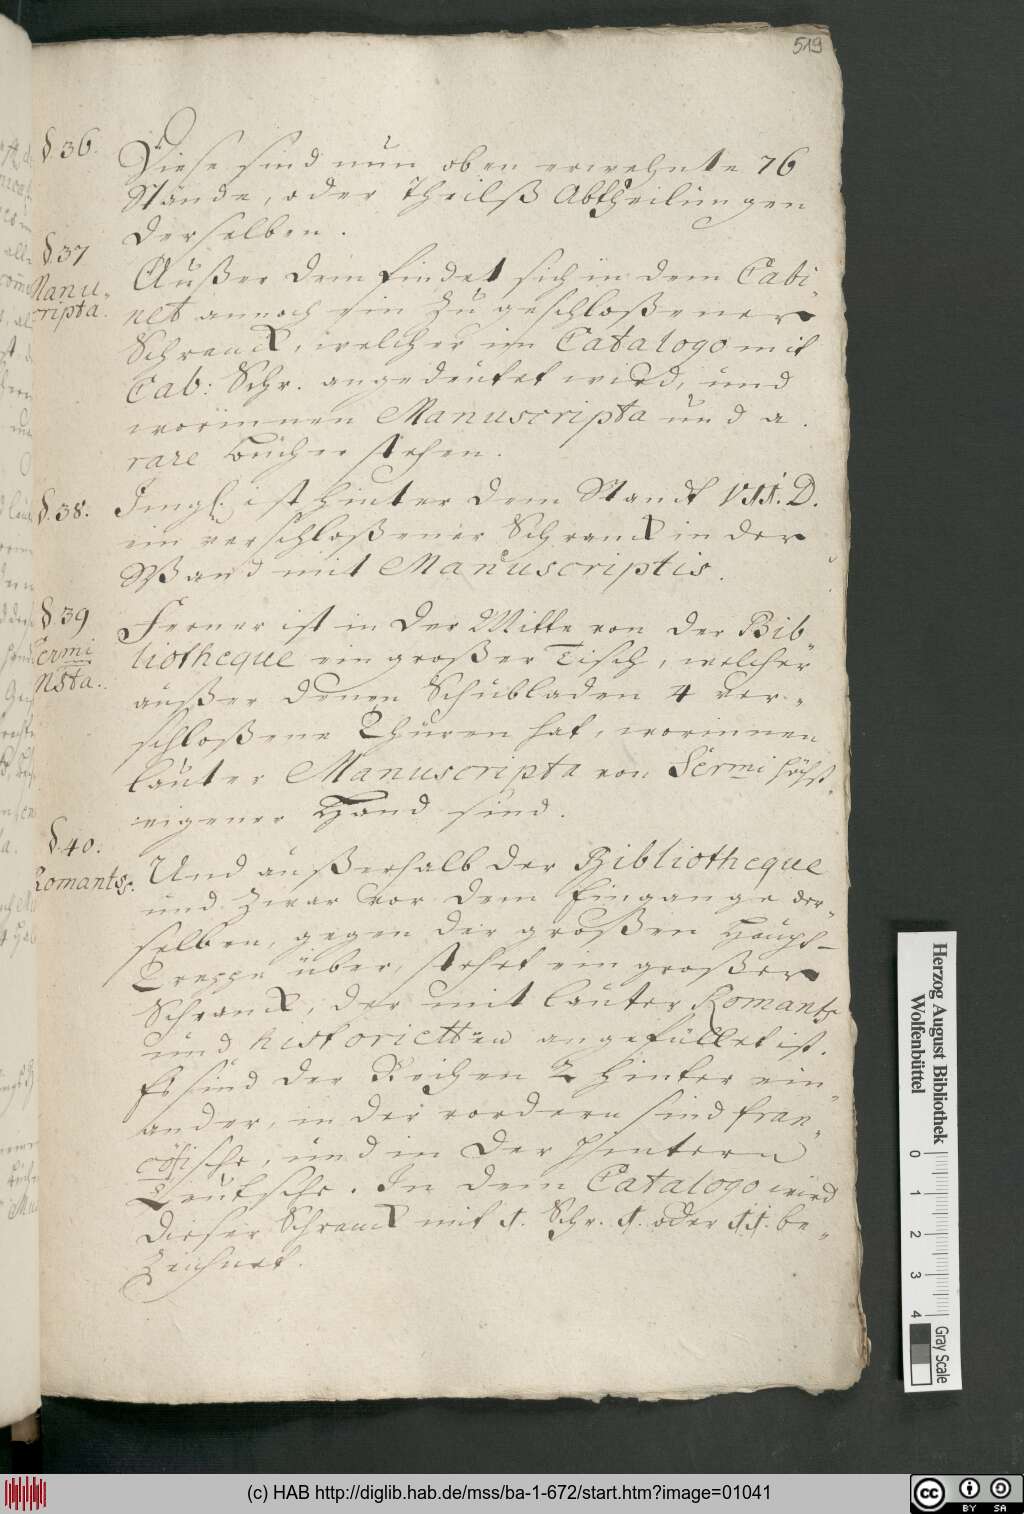 519
§. 36.
Diese sind nun oben erwehnte 76
Stände, oder Theilß Abtheilungen
derselben.
§. 37
Manu-
scripta.
Außer dem findet sich in dem Cabi-
net annoch ein Zugeschloßener
Schranck, welcher im Catalogo mit
Cab: Schr. angedeutet wird, und
worinnen Manuscripta und a.
rare Bücher stehen.
§. 38.
Imgl. ist hinter dem Standt VII. D.
ein verschloßener Schranck in der
Wand mit Manuscriptis.
§. 39
Sermi
Msta.
Ferner ist in der Mitte von der Bib-
liotheque ein großer Tisch, welcher
außer denen Schubladen 4 ver-
schloßene Thüren hat, worinnen
lauter Manuscripta von Sermi höchst
eigener Hand sind.
§. 40.
Romants.
Und außerhalb der Bibliotheque
und zwar vor dem Eingange der-
selben, gegen der großen Haupt-
Treppe über, stehet ein großer
Schranck, der mit lauter Romants
und historietten angefüllet ist.
Es sind der Reihen 2 hinter ein-
ander, in der vordern sind fran-
cösische, und in der hintern
Teutsche. In dem Catalogo wird
dieser Schranck mit I. Schr. I. oder II. be-
zeichnet.
Herzog August Bibliothek
Wolfenbüttel
0 1 2 3 4
Gray Scale
(c) HAB http://diglib.hab.de/mss/ba-1-672/start.htm?image=01041
cc BY SA